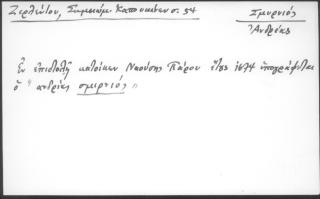 Ζερλέντου, Σημειώμ. Καπουκίνων σ. 54
Σμυρνιός
Ἀνδρέας
Ἐν ἐπιστολῇ κατοίκων Ναούσης Πάρου ἔτους 1674 ὑπογράφεται
ὁ "ἀντρέας σμιρνιός"